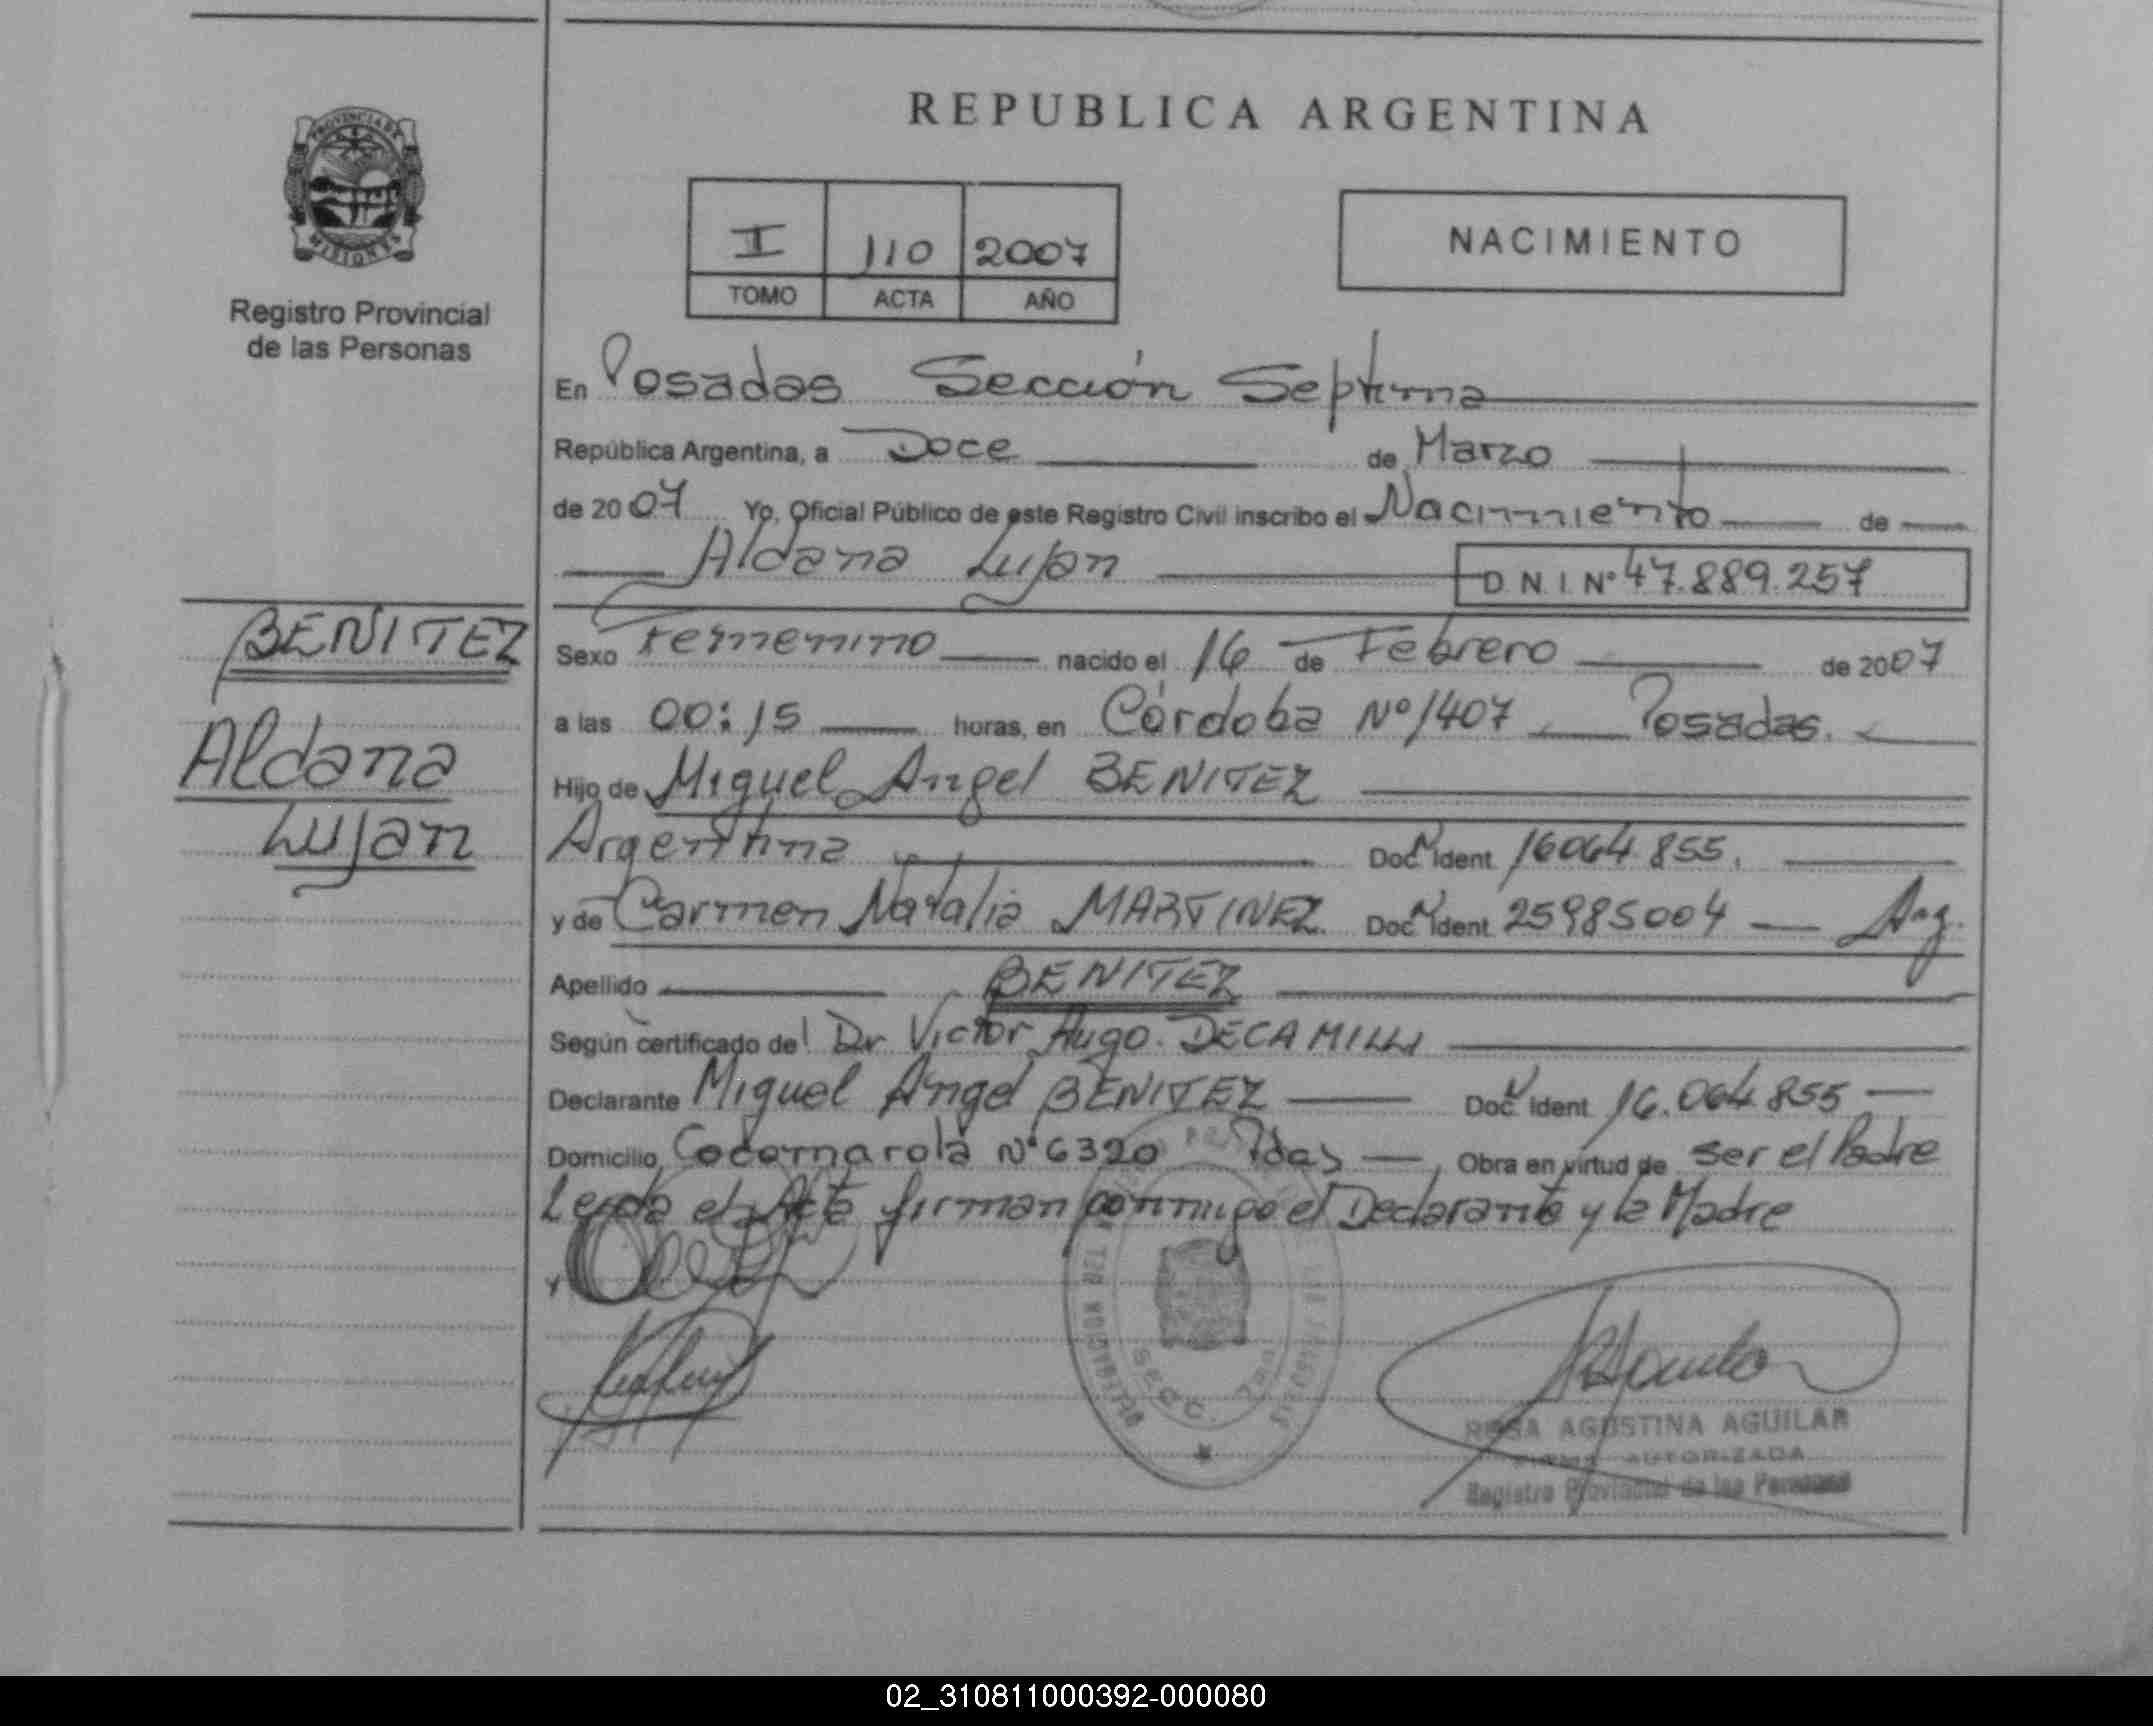 REPUBLICA ARGENTINA
PROVINCIA DE
MISIONES
Registro Provincial
de las Personas
I 110 2007
TOMO ACTA AÑO
NACIMIENTO
En Posadas Sección Septima
República Argentina, a Doce de Marzo
de 2007 Yo, Oficial Público de este Registro Civil inscribo el Nacimiento de
Aldana Lujan D.N.I. Nº 47.889.257
BENITEZ
Aldana
Lujan
Sexo Femenino nacido el 16 de Febrero de 2007
a las 00:15 horas, en Córdoba Nº 1407 Posadas.
Hijo de Miguel Angel BENITEZ
Argentina Doc. Ident. 16064855.
y de Carmen Natalia MARTINEZ Doc. Ident. 25985004 Arg.
Apellido BENITEZ
Según certificado del Dr Victor Hugo DECAMILLI
Declarante Miguel Angel BENITEZ Doc. Ident. 16.064.855
Domicilio Cocomarola Nº 6320 Pdas, Obra en virtud de ser el Padre
Leida el Acta firman conmigo el Declarante y la Madre
Secc. 7ma
ROSA AGUSTINA AGUILAR
FIRMA AUTORIZADA
Registro Provincial de las Personas
02_310811000392-000080